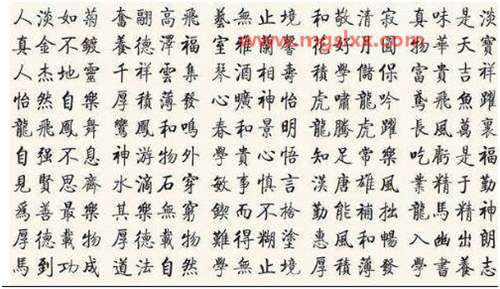 人淡如菊 奮翮高飛 藝無止境 和敬清寂 真味是淡
真金不鍍 養德澤福 室雅蘭馨 花好月圓 物華天寶
www.mgslxx.com
人杰地靈 千祥雲集 琴酒相 壽 學儲 富貴吉祥
怡然自樂 厚積薄發 心曠神怡 虎嘯龍吟 鳶飛魚躍
龍飛鳳舞 鸞鳳和鳴 春和景明 龍騰虎躍 長風萬裏
自强不息 神游物外 學貴心悟 知足常樂 吃虧是福
見賢思齊 水滴石穿 敏事慎言 漢唐雄風 業精于勤
爲善最樂 其樂無窮 鍥而不捨 勤能補拙 龍馬精神
厚德載物 厚德載物 難得糊塗 惠風和暢 入幽出朗
馬到功成 道法自然 學無止境 厚積薄發 學書養志